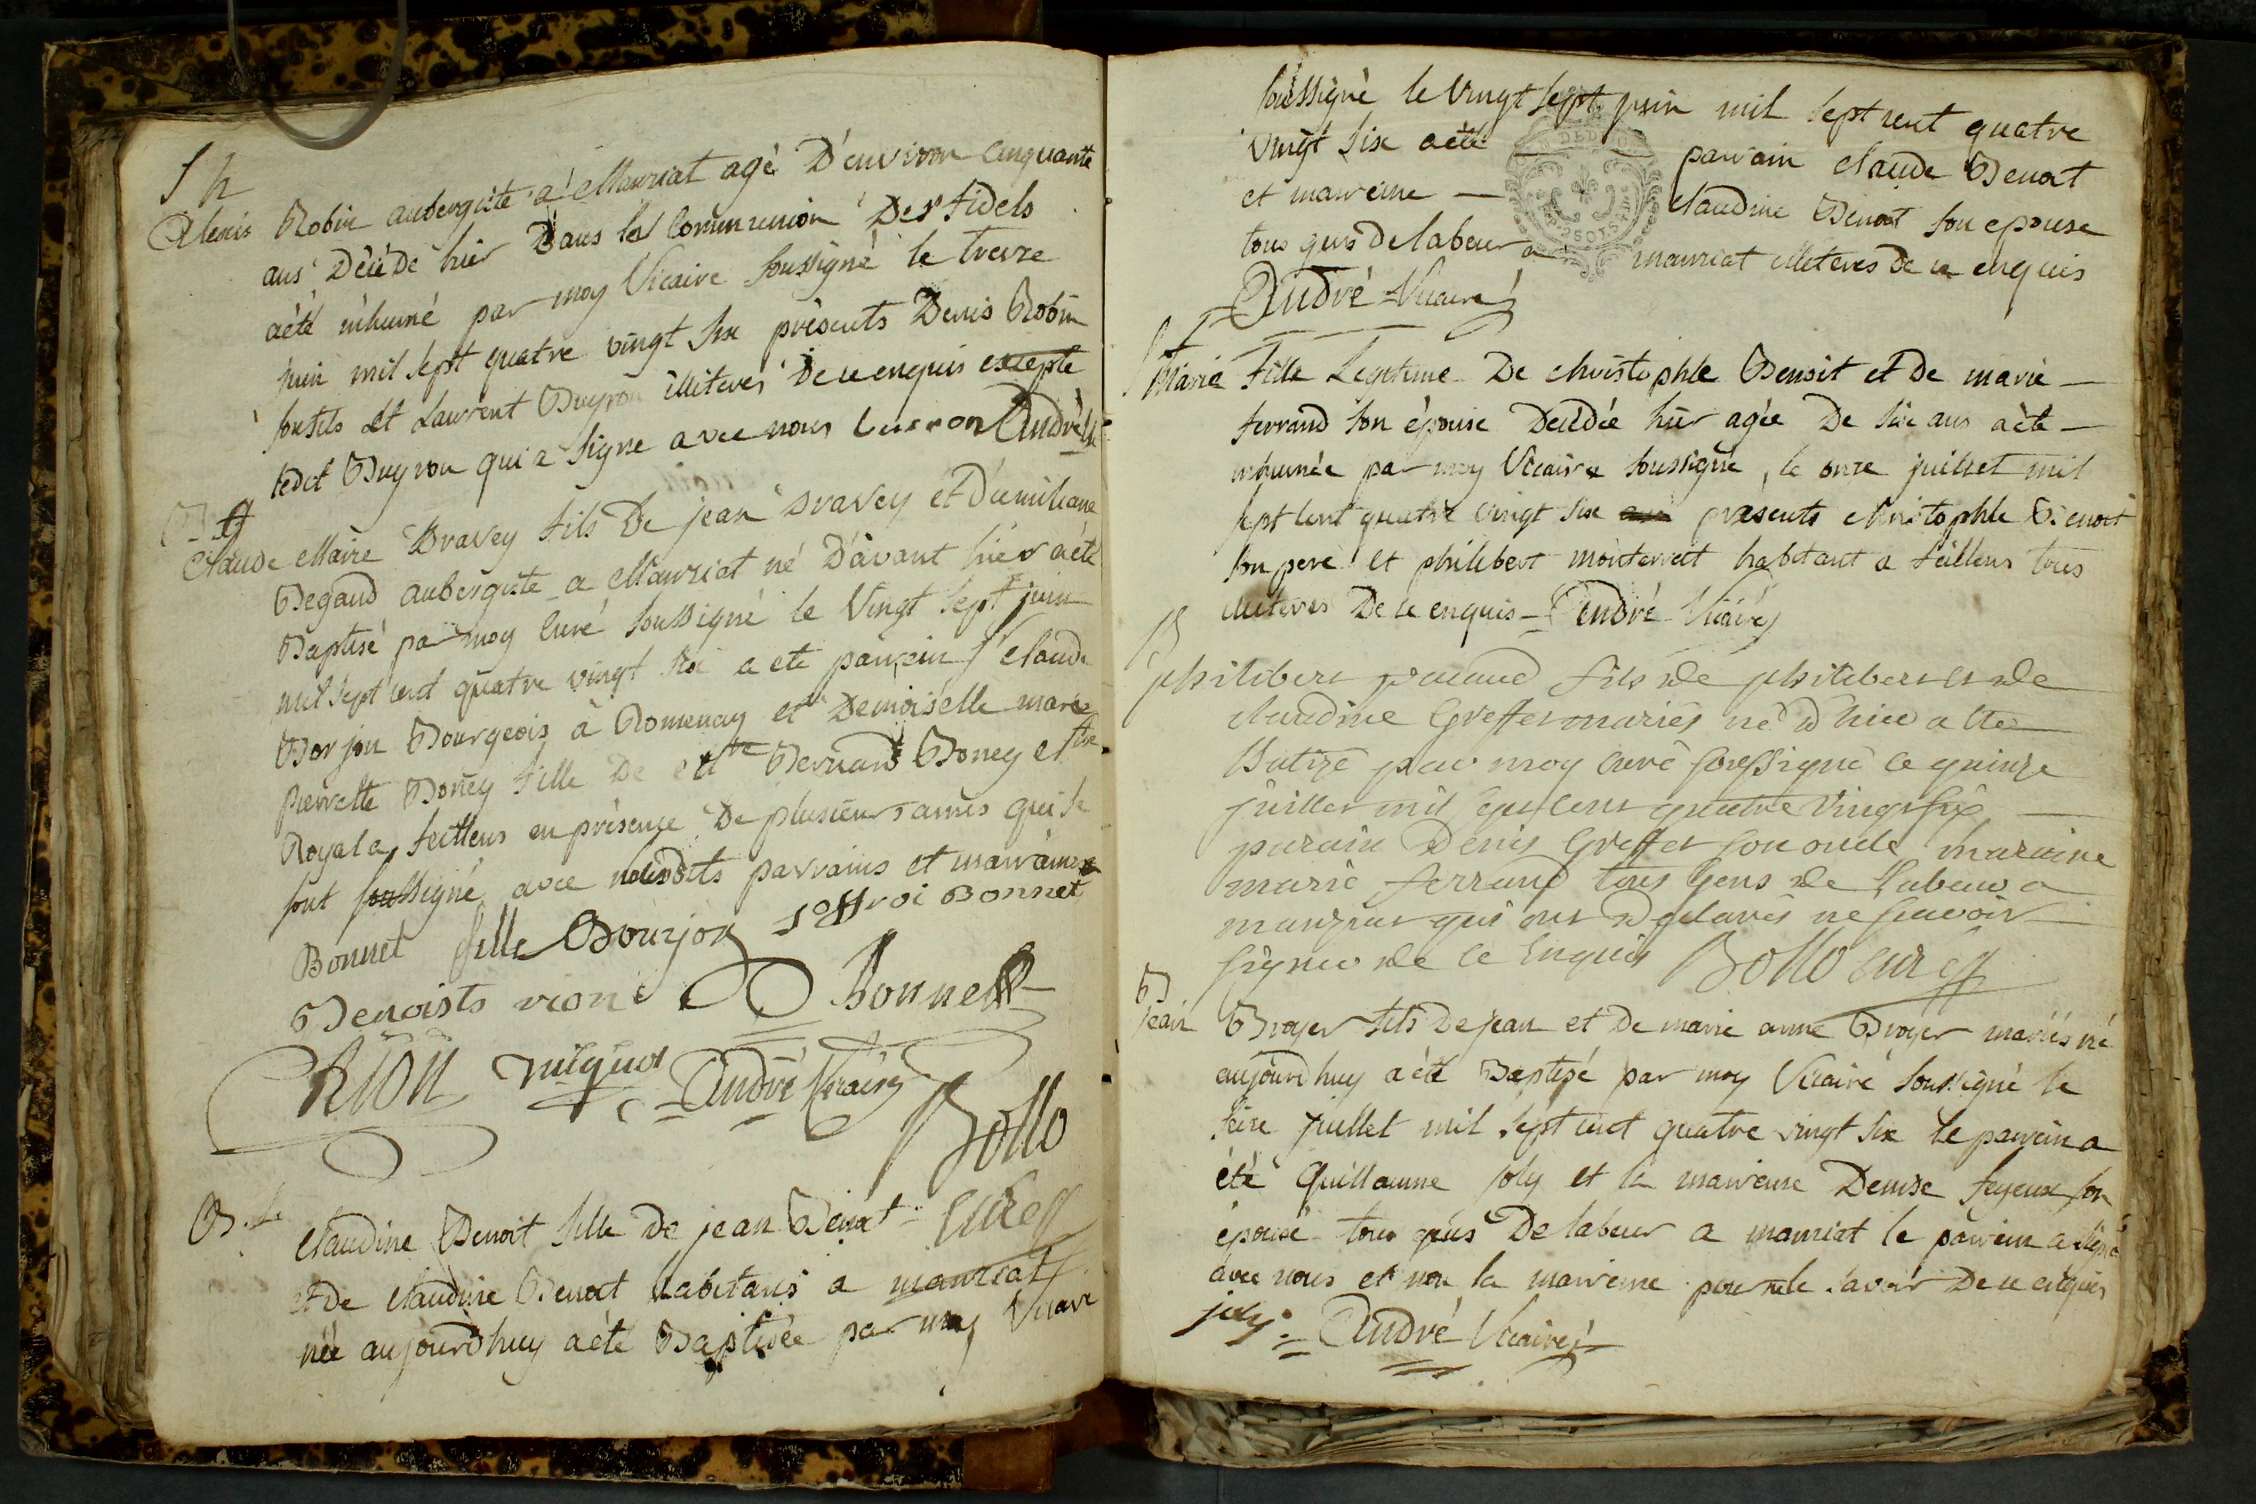 S h
Alexis Robin aubergiste a Mauriat agé D'environ cinquante
ans Décédé hier Dans la Communion Des fidels
aété inhumé par moy Vicaire soussigné le treize
juin mil sept quatre vingt six présents Denis Robin
son fils et Laurent Buyron illiteres de ce enquis excepte
ledit Buyron qui a signe avec nous buiron André
B
Claude Marie Dravey fils De jean Dravey et D'emiliane
Begaud aubergiste a Mauriat né D'avant hier aété
Baptisé par moy Curé soussigné le Vingt sept juin
mil sept cent quatre vingt six a eté parrain sr Claude
Borjon Bourgeois à Romenay et Demoiselle marie
pierrette Boney fille De Me Bernard Boney
Royal a feillens en présence De plusieurs amis qui se
sont soussigné avec lesdits parrains et marraine
Bonnet fille Bourjon Joffroi Bonnet
Benoists vion Bonnet
Rion André Vicaire
Bollo
curé
B.
Claudine Benoit fille De jean Benoit
et De Claudine Benoit habitans a mauriat
née aujourdhuy aété Baptisée par moy Vicaire
soussigné le Vingt sept juin mil sept cent quatre
vingt six aété parrain Claude Benoit
et marreine Claudine Benoit son epouse
tous gens de labeur a mauriat illiteres De ce enquis
André Vicaire
Marie fille Legitime De christophle Benoit et De marie
ferrand son épouse Decédée hier agée De six ans aété
inhumée par moy Vicaire soussigné, le onze juillet mil
sept cent quatre vingt six présents christophle Benoit
son pere et philibert monterrat habitant a feillens tous
illiteres De ce enquis André Vicaire
B
philibert fils de philibert et de
claudine Greffet mariés né d'hier a ete
Batizé par moy curé soussigné ce quinze
juillet mil sept cent quatre vingt six
parain Denis Greffet son oncle maraine
marie ferrand tous gens de labeur a
mauziat qui ont declarés ne scavoir
signer de ce enquis Bollo curé
B
jean Broyer fils De jean et De marie anne Broyer mariés né
aujourdhuy aété Baptisé par moy Vicaire soussigné le
seize juillet mil sept cent quatre vingt six le parrein a
été Guillaume joly et la marreine Denise feyeux son
épouse tous gens De labeur a mauriat le parrein a signé
avec nous et non la marreine pour ne le savoir De ce enquis
joly André Vicaire